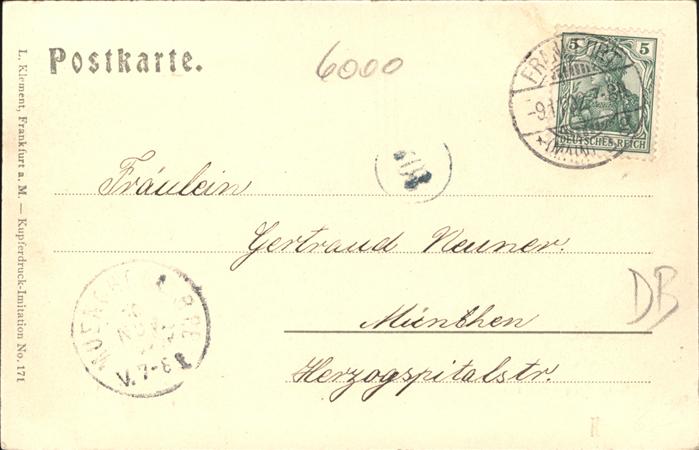 Postkarte.
6000
5 5
DEUTSCHES REICH
FRANKFURT
(MAIN)
Fräulein
Gertraud Neuner.
München
Herzogspitalstr.
DB
V. 7-8
L. Klement, Frankfurt a. M. — Kupferdruck-Imitation No. 171